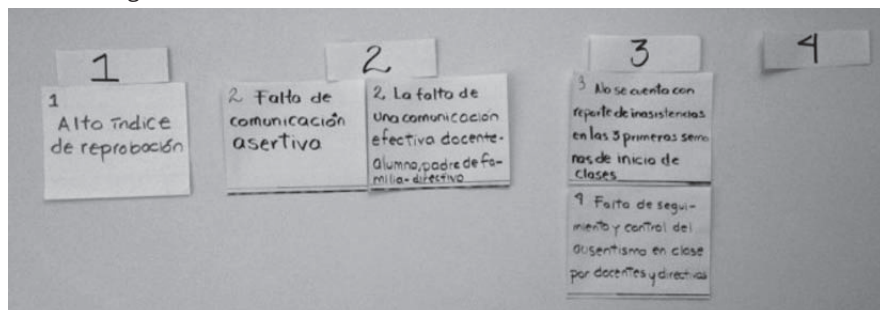 1
1
Alto índice
de reprobación
2
2 Falta de
comunicación
asertiva
2, La falta de
una comunicación
efectiva docente-
alumno, padre de fa-
milia-directivo
3
3 No se cuenta con
reporte de inasistencias
en las 3 primeras sema
nas de inicio de
clases
4 Falta de segui-
miento y control del
ausentismo en clase
por docentes y directivos
4